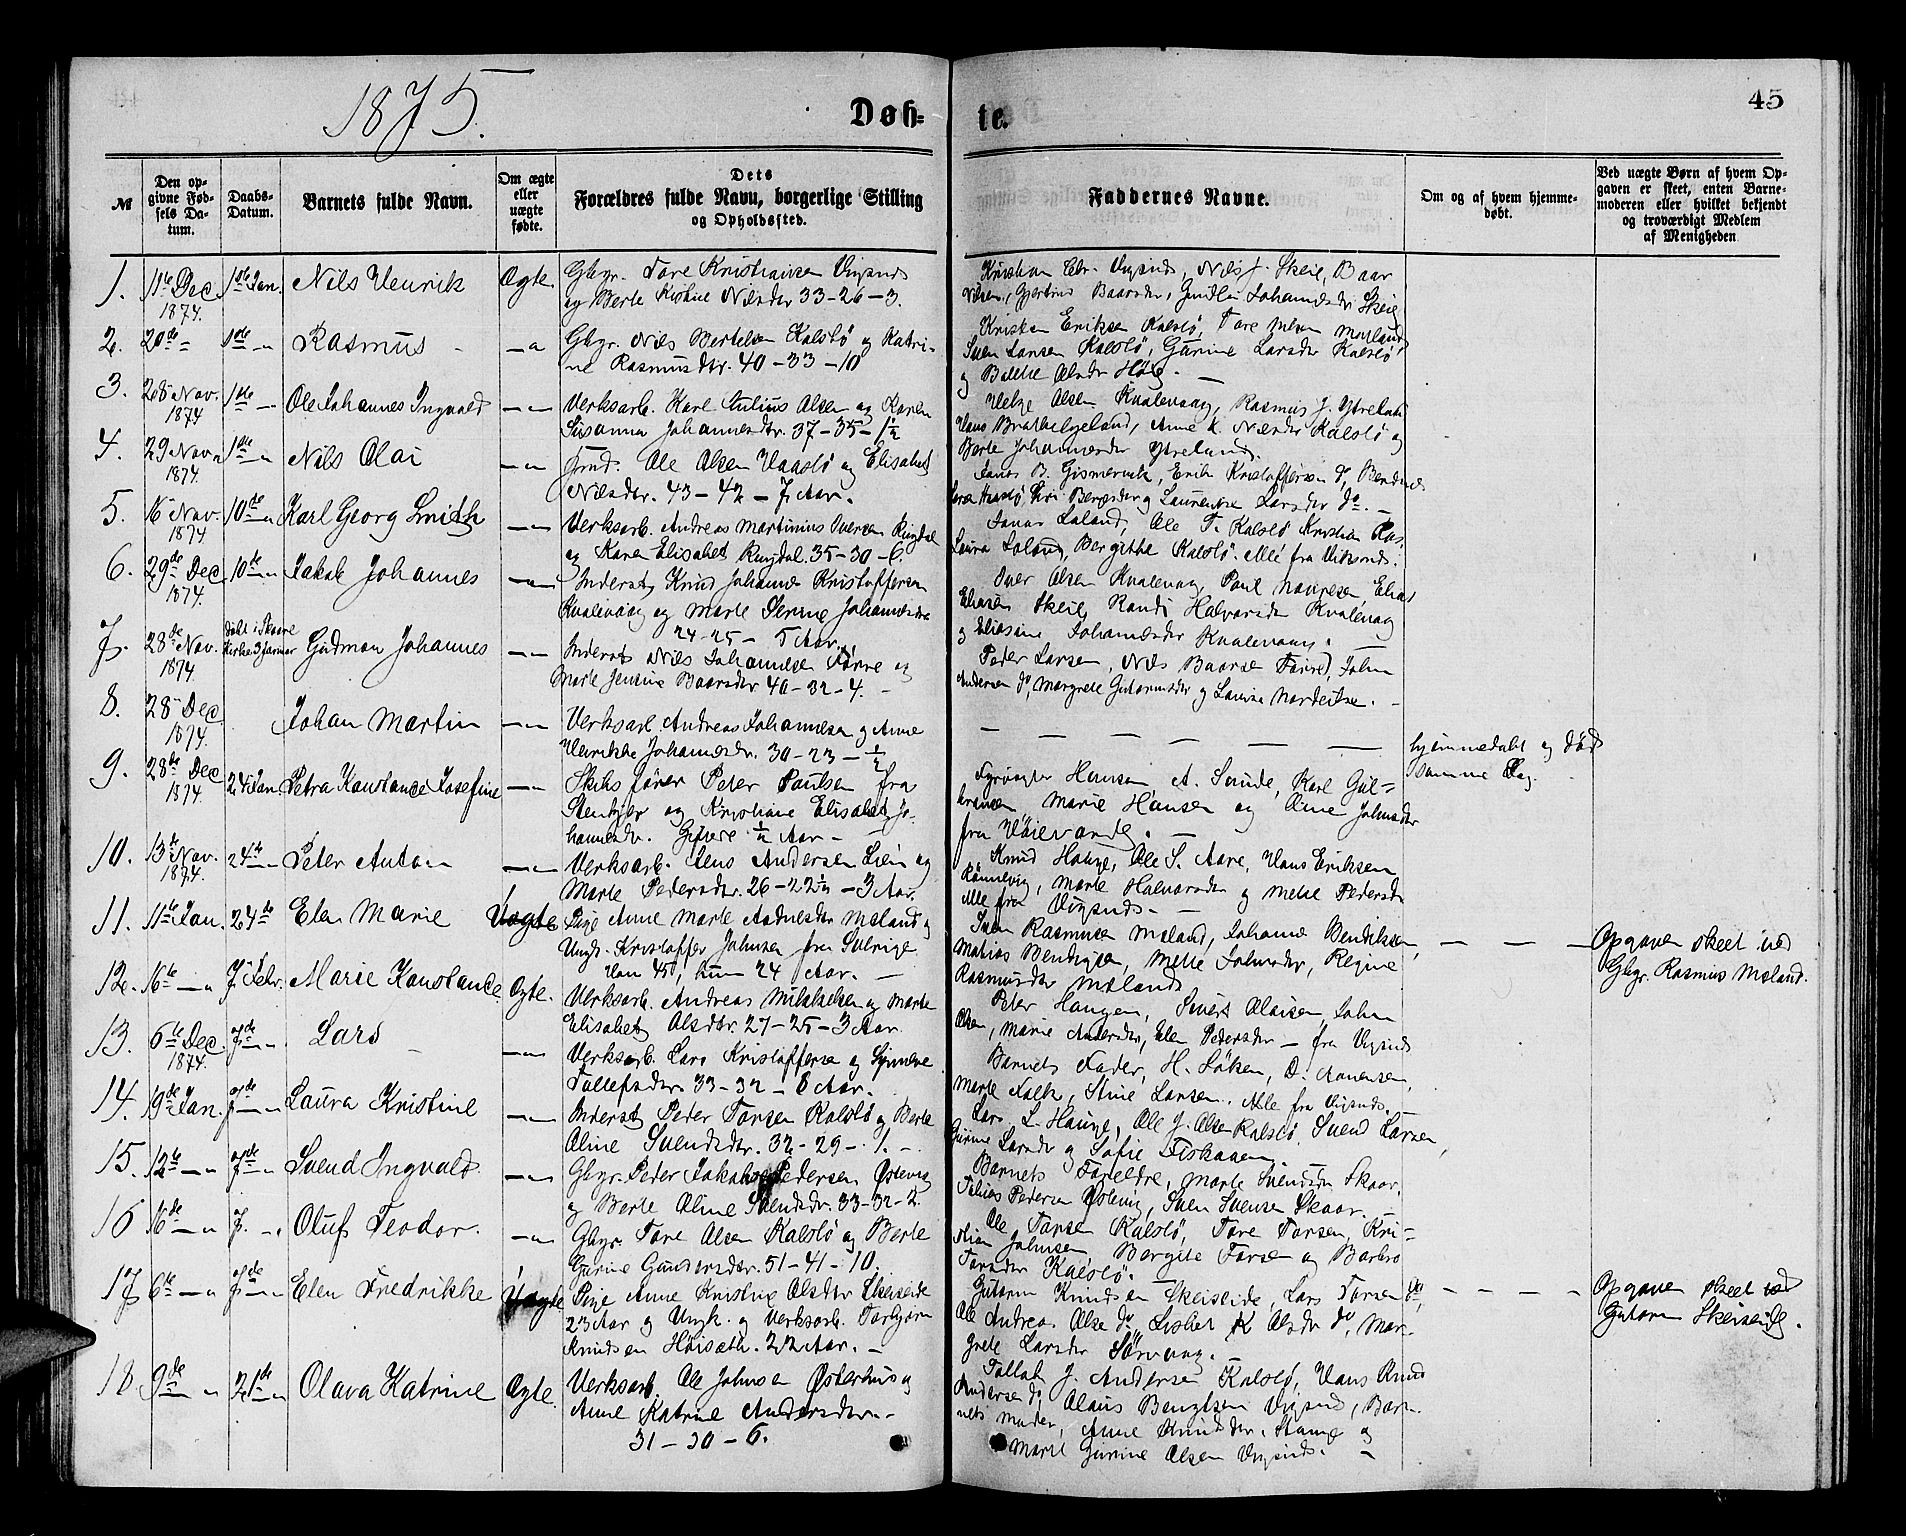 1875.
Døb-
te.
45
№
Den op-
givne Fød-
sels Da-
tum.
Daabs-
Datum.
Barnets fulde Navn.
Om ægte
eller
uægte
fødte.
Dets
Forældres fulde Navn, borgerlige Stilling
og Opholdssted.
Faddernes Navne.
Om og af hvem hjemme-
døbt.
Ved uægte Børn af hvem Op-
gaven er skeet, enten Barne-
moderen eller hvilket bekjendt
og troværdigt Medlem
af Menigheden
1. 11te Dec. 1874. 1ste Jan. Nils Henrik Ægte.
Gbgr. Tore Kristiansen Vigsnes
og Berte Nilsdtr 33-26-3.
Nils J. Skeie, Baar
2. 20de 1ste Rasmus
Gbgr. Nils Bertelsen Kalslø og Katri-
ne Rasmusdtr. 40-33-10
Kristen Eriksen Kalslø, Tore
Sven Larsen Kalslø, Gurine Larsdtr Kalslø
og
3. 28 Nov. 1874 1ste Ole Johannes Ingvald
Verksarb. Karl Julius Olsen og Karen
Susanna Johannesdtr. 37-35-1½
Helge Olsen Kvalevaag, Rasmus J. Ytreland
Berte Johannesdtr Ytreland.
4. 29 Nov. 1874 1ste Nils Olai
Ole Olsen Vaaslø og Elisabet
Nilsdtr. 43-42-7 Aar.
Jonas B. Gismervik, Erik Kristoffersen do,
5. 16 Nov. 1874 10de Karl Georg Smith
Verksarb. Andreas Martinius Iversen Ringdal
og Karen Elisabet Ringdal. 35-30-6.
Jonas Loland, Ole T. Kalslø Kristian
Laura Loland, Bergitha Kalslø. Alle fra
6. 29de Dec 1874. 10de Jakob Johannes
Inderst Knud Johannes Kristoffersen
Kvalevaag og Marte Serine Johannesdtr
24-25- 5 Aar.
Iver Olsen Kvalevaag, Paul
Skeie, Randi Halvorsdtr Kvalevag
og Eliasine Johannesdtr Kvalevaag.
7. 28de Nov. 1874 Døbt i Skaare
Kirke 3 Januar Gudmon Johannes
Inderst Nils Johannesen Førre og
Marte Jensine Baarsdtr 40-32-4.
Peder Larsen, Nils Baarsen Førre, John
Andersen do, Margrete Gutormsdtr og
8. 28 Dec. 1874. Johan Martin
Verksarb. Andreas Johannesen og Anne
Henrikke Johannesdtr. 30-23-½
hjemmedøbt og død
samme Dag.
9. 28de Dec 1874. 24 Jan Petra Konstance Josefine
Skibsfører Peter Paulsen fra
og Kristiane Elisabet Jo-
hannesdtr. Givere ½ Aar
Fyrvogter Hansen A. Sunde, Karl Gul-
bransen Marie Hansen og Aline Johnsdtr
fra
10. 13de Nov. 1874. 24de Peter Anton
Verksarb. Jens Andersen Lien og
Marte Pedersdtr. 26-22½-3 Aar.
Knud Hauge, Ole S. Aare, Hans Eriksen
Rønnevig, Marte Halvorsdtr og Mette Pedersdtr
Alle fra Vigsnes.
11. 11te Jan. 24de Elen Marie Uægte
Pige Anne Marte Aadnesdtr Mæland og
Ungk. Kristoffer Johnsen fra Sverige
Han 45, hun 24 Aar.
Sven Rasmusen Mæland, Johanne Bendiksen
Mette Johnsdtr, Regine
Rasmusdtr Mæland
Opgaven skeet ved
Gbgr. Rasmus Mæland.
12. 16te 7 Febr. Marie Konstance Ægte.
Verksarb. Andreas Mikkelsen og Marte
Elisabet Olsdtr. 27-25-3 Aar
Peter Haugen, Sivert Olaisen, John
Olsen, Marie Andersdtr, Elen Pedersdtr - fra Vigsnes
13. 6te Dec. 1874. 7de Lars
Verksarb. Lars Kristoffersen og
Tollefsdtr. 33-32- 8 Aar.
Barnets Fader, H. Løken, D. Aanensen,
Marte Falk, Stine Larsen. Alle fra Vigsnes.
14. 19de Jan. 7de Laura Kristine
Inderst Peder Torsen Kalslø og Berte
Oline Svendsdtr. 32-29-1.
Lars L. Hauge, Ole J. Olsen Kalslø, Svend Larsen,
Gurine Larsdtr og Sofie Fiskaaen
15. 12te 7de Svend Ingvald
Gbgr. Peder Jakob Pedersen Østevig
og Berte Oline Svendsdtr. 33-32-2.
Barnets Forældre, Marte Svendsdtr Skaar,
Tobias Pedersen Østevig, Sven Svensen Skaar.
16 16de 7. Oluf Teodor.
Gbgr. Tore Olsen Kalslø og Berte
Gurine Gundersdtr. 51-41-10.
Ole Torsen Kalslø, Tore Torsen, Kri-
stian Johnsen, Bergite Torsen og Barbro
Torsdtr Kalslø.
17 6te 7de Elen Fredrikke Uægte
Pige Anne Kristine Olsdtr Skeiseide
23 Aar og Ungk. og Verksarb. Torbjørn
Knudsen Høisæth. 22 Aar.
Gutorm Knudsen Skeiseide, Lars Torsen do,
Ole Andreas Olsen do, Lisbet K Olsdtr do, Mar-
grete Larsdtr Sørvaag.
Opgaven skeet ved
Gutorm Skeiseide.
18 9de 21de Olava Katrine Ægte.
Verksarb. Ole Johnsen Østerhus og
Anne Katrine Andersdtr.
31-30-6.
Tollak J. Andersen Kalslø, Hans Knud
Andersen do, Olaus Bengtsen Vigsnes, Bar-
nets Moder, Anne Knudsdtr. Stange og
Marte Gurine Olsen Vigsnes.